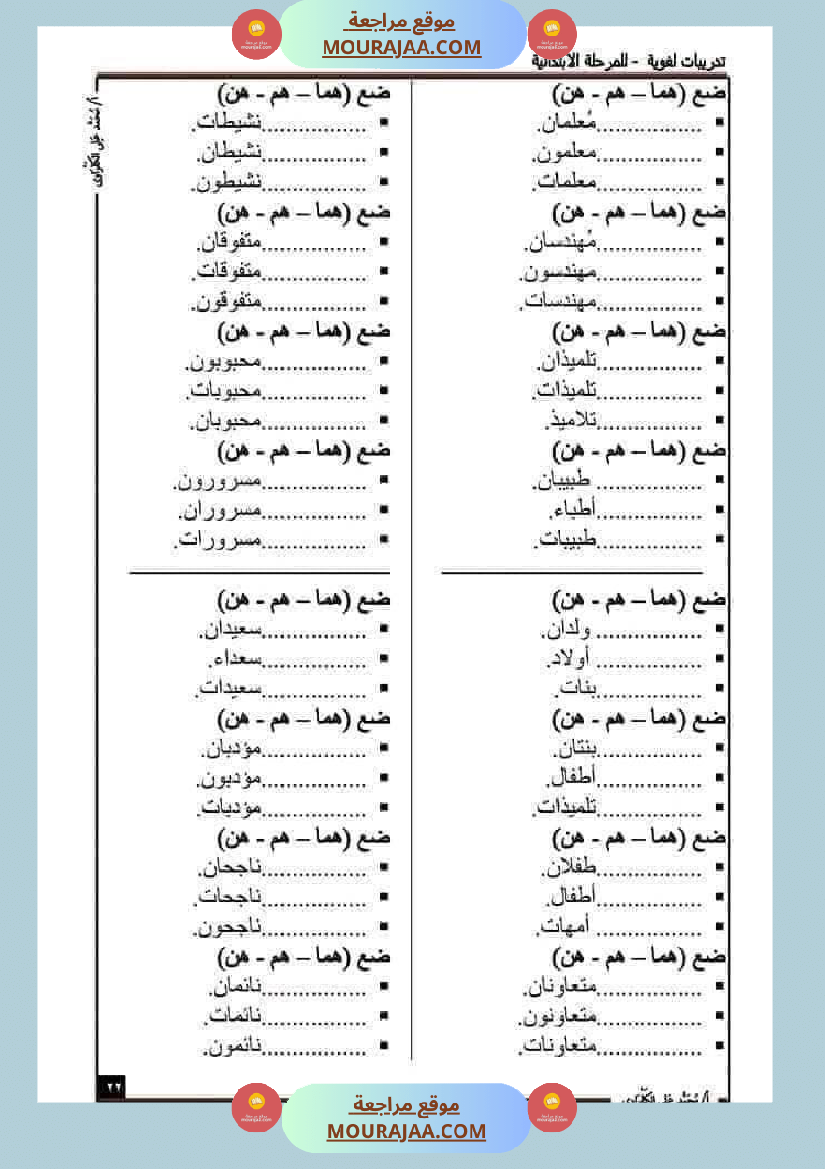 موقع مراجعة
MOURAJAA.COM
تدريبات لغوية - للمرحلة الابتدائية
ضع (هما – هم - هن)
▪ .................مُعلمان.
▪ .................معلمون.
▪ .................معلمات.
ضع (هما – هم - هن)
▪ .................مُهندسان.
▪ .................مهندسون.
▪ .................مهندسات.
ضع (هما – هم - هن)
▪ .................تلميذان.
▪ .................تلميذات.
▪ .................تلاميذ.
ضع (هما – هم - هن)
▪ ................. طبيبان.
▪ .................أطباء.
▪ .................طبيبات.
ضع (هما – هم - هن)
▪ ................. ولدان.
▪ ................. أولاد.
▪ .................بنات.
ضع (هما – هم - هن)
▪ .................بنتان.
▪ .................أطفال.
▪ .................تلميذات.
ضع (هما – هم - هن)
▪ .................طفلان.
▪ .................أطفال.
▪ ................. أمهات.
ضع (هما – هم - هن)
▪ .................متعاونان.
▪ .................متعاونون.
▪ .................متعاونات.
ضع (هما – هم - هن)
▪ .................نشيطات.
▪ .................نشيطان.
▪ .................نشيطون.
ضع (هما – هم - هن)
▪ .................متفوقان.
▪ .................متفوقات.
▪ .................متفوقون.
ضع (هما – هم - هن)
▪ .................محبوبون.
▪ .................محبوبات.
▪ .................محبوبان.
ضع (هما – هم - هن)
▪ .................مسرورون.
▪ .................مسروران.
▪ .................مسرورات.
ضع (هما – هم - هن)
▪ .................سعيدان.
▪ .................سعداء.
▪ .................سعيدات.
ضع (هما – هم - هن)
▪ .................مؤدبان.
▪ .................مؤدبون.
▪ .................مؤدبات.
ضع (هما – هم - هن)
▪ .................ناجحان.
▪ .................ناجحات.
▪ .................ناجحون.
ضع (هما – هم - هن)
▪ .................نائمان.
▪ .................نائمات.
▪ .................نائمون.
٢٢
موقع مراجعة
MOURAJAA.COM